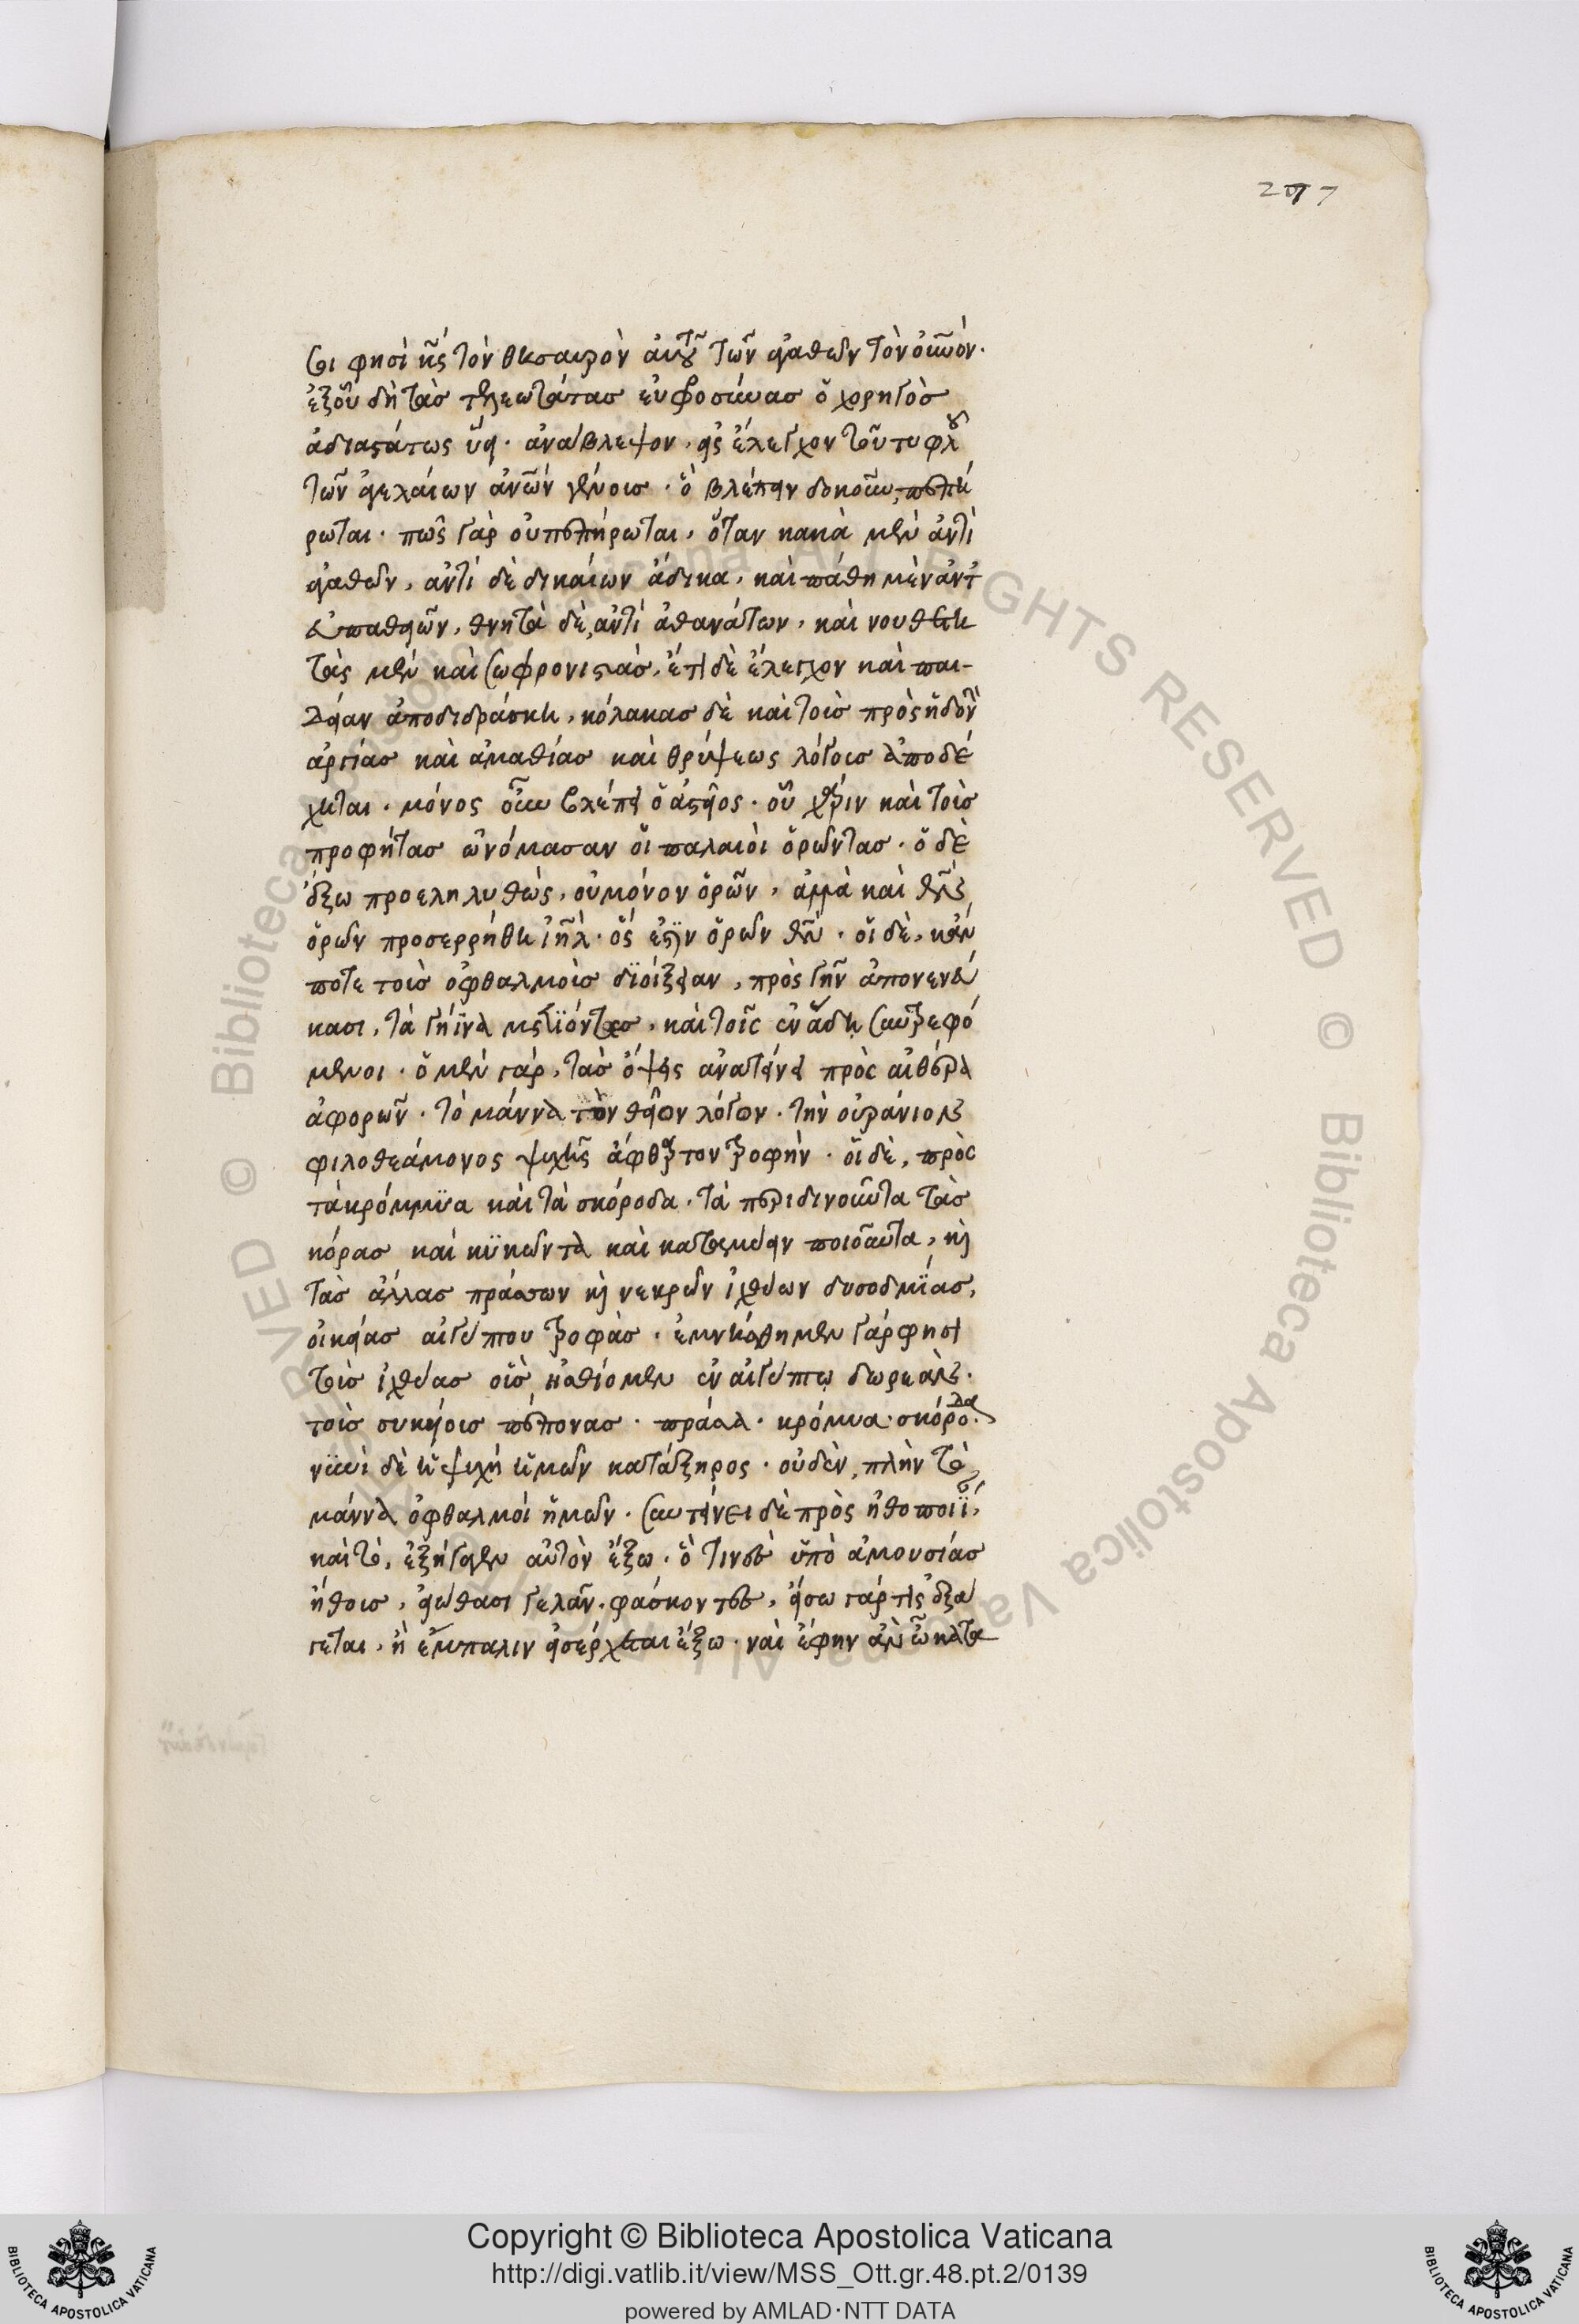 277
σοι φησὶ κς τὸν θησαυρὸν αὐτοῦ τῶν ἀγαθῶν τὸν οὐνον·
ἐξ οὗ δὴ τὰς τελεωτάτας εὐφροσύνας ὁ χορηγὸς
ἀδιαστάτως ὕει· ἀνάβλεψον, εἰς ἔλεγχον τοῦ τυφλοῦ
τῶν ἀγελαίων ἀνων γένους· ὃ βλέπειν δοκοῦν, πεπή
ρωται· πῶς γὰρ οὐ πεπήρωται, ὅταν κακὰ μὲν ἀντὶ
ἀγαθῶν, ἀντὶ δὲ δικαίων ἄδικα, καὶ πάθη μὲν ἀντὶ
εὐπαθειῶν, θνητὰ δὲ, ἀντὶ ἀθανάτων, καὶ νουθετη
τὰς μὲν καὶ σωφρονιστὰς, ἔτι δὲ ἔλεγχον καὶ παι-
δείαν ἀποδιδράσκη, κόλακας δὲ καὶ τοὺς πρὸς ἡδονὴν
ἀργίας καὶ ἀμαθίας καὶ θρύψεως λόγους ἀποδέ
χηται· μόνος οὖν βλέπει ὁ ἀστεῖος· οὗ χάριν καὶ τοὺς
προφήτας ὠνόμασαν οἱ παλαιοὶ ὁρῶντας· ὁ δὲ
ἔξω προεληλυθὼς, οὐ μόνον ὁρῶν, ἀλλὰ καὶ θν
ὁρῶν προσερρήθη ἰηλ· ὅς ἐστιν ὁρῶν θν· οἱ δὲ, κἄν
ποτε τοὺς ὀφθαλμοὺς διοίξειαν, πρὸς γῆν ἀπονενεύ
κασι, τὰ γήϊνα μετιόντες, καὶ τοῖς ἐν ἅδη συντρεφό
μενοι· ὁ μὲν γὰρ, τὰς ὄψεις ἀνατείνει πρὸς αἰθέρα
ἀφορῶν· τὸ μάννα τὸν θεῖον λόγον· τὴν οὐράνιον
φιλοθεάμονος ψυχῆς ἄφθαρτον τροφήν· οἱ δὲ, πρὸς
τὰ κρόμμυα καὶ τὰ σκόροδα· τὰ περιδινοῦντα τὰς
κόρας καὶ κυκῶντα καὶ καταμύειν ποιοῦντα, καὶ
τὰς ἄλλας πράσων καὶ νεκρῶν ἰχθύων δυσοδμίας,
οἰκείας αἰγύπτου τροφάς· ἐμνήσθημεν γάρ φησι
τοὺς ἰχθύας οὓς ἠσθίομεν ἐν αἰγύπτω δωρεάν·
τοὺς συκύους πέπονας· πράσα· κρόμυα· σκόροδα·
νυνὶ δὲ ἡ ψυχὴ ἡμῶν κατάξηρος· οὐδὲν, πλὴν τὸ
μάννα ὀφθαλμοὶ ἡμῶν· συντείνει δὲ πρὸς ἠθοποιΐαν
καὶ τὸ, ἐξήγαγεν αὐτὸν ἔξω· ὅ τινες ὑπὸ ἀμουσίας
ἤθους, εἰώθασι γελᾶν· φάσκοντες, εἴσω γάρ τις ἐξά
γεται, ἢ ἔμπαλιν εἰσέρχεται ἔξω· ναὶ ἔφην ἂν ὦ κατα
Copyright © Biblioteca Apostolica Vaticana
http://digi.vatlib.it/view/MSS_Ott.gr.48.pt.2/0139
powered by AMLAD·NTT DATA